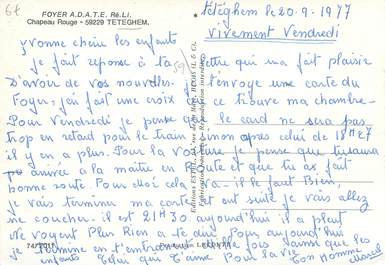 6t
FOYER A.D.A.T.E. Ré.Li.
Chapeau Rouge - 59229 TETEGHEM,
Téteghem le 20.9.1977
VIVEMENT Vendredi
Yvonne chérie les enfants
je fait reponse à ta lettre qui ma fait plaisir
D'avoir de vos nouvelles. t'envoye une carte du
Foyer j'ai fait une croix ce trouve ma chambre.
Pour Vendredi je pense que le card ne sera pas
trop en retard pour le train sinon après celui de 18H27
il y en a plus. Pour la voiture je pense que tu
pu arrivée a la maitre en Route et que tu ax fait
bonne route Pour moi cela va - il fait Bien,
je vais terminé ma carte et ont suite je vais allez
me coucher - il est 21H30 aujourd'hui il a pleut
Ne voyent Plus Rien a te dire Pour aujourd'hui
je termine en t'embrassant fois ainsi que les
enfants Celui qui t'aime Pour la Vie Ton homme
Editions
Reproduction interdite